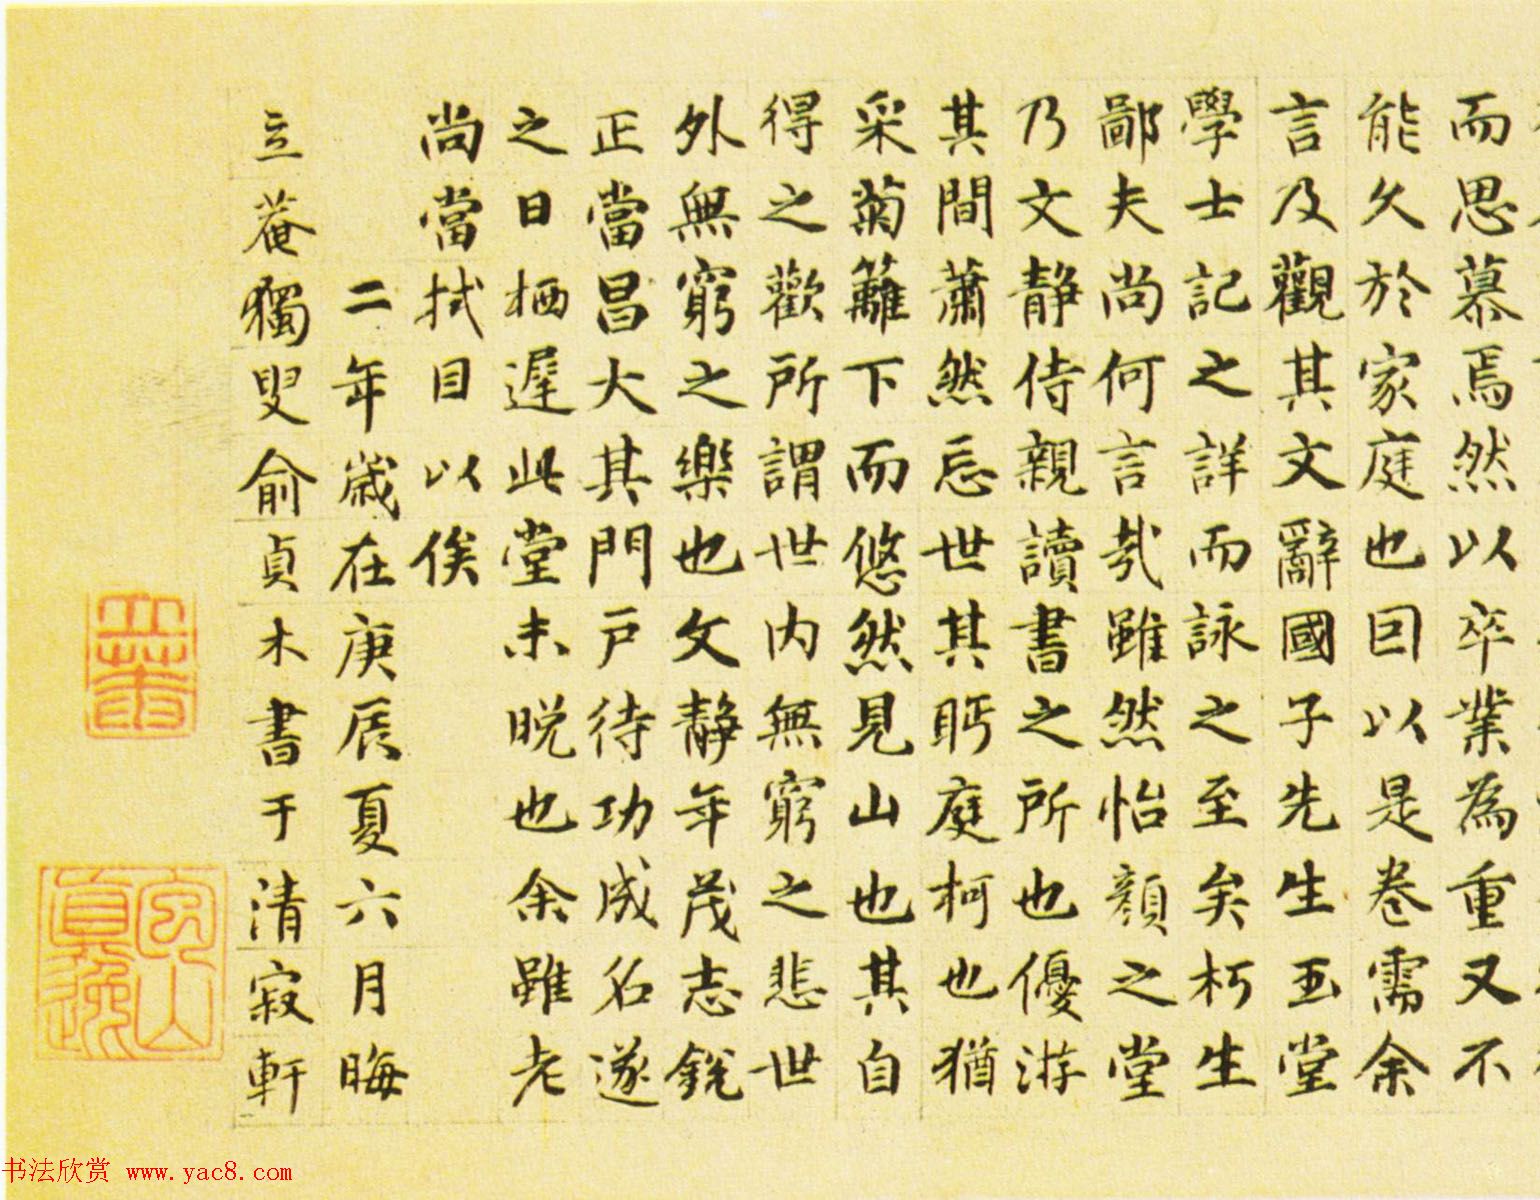 而思慕焉然以卒業為重又不
能久於家庭也囙以是卷需余
言及觀其文辭國子先生玉堂
學士記之詳而詠之至矣朽生
鄙夫尚何言㢤雖然怡顏之堂
乃文靜侍親讀書之所也優游
其間蕭然忘世其眄庭柯也猶
采菊籬下而悠然見山也其自
得之歡所謂世內無窮之悲世
外無窮之樂也文靜年茂志銳
正當昌大其門戶待功成名遂
之日栖遲此堂未晚也余雖老
尚當拭目以俟
二年歲在庚辰夏六月晦
立菴獨叟俞貞木書于清寂軒
立菴
书法欣赏 www.yac8.com